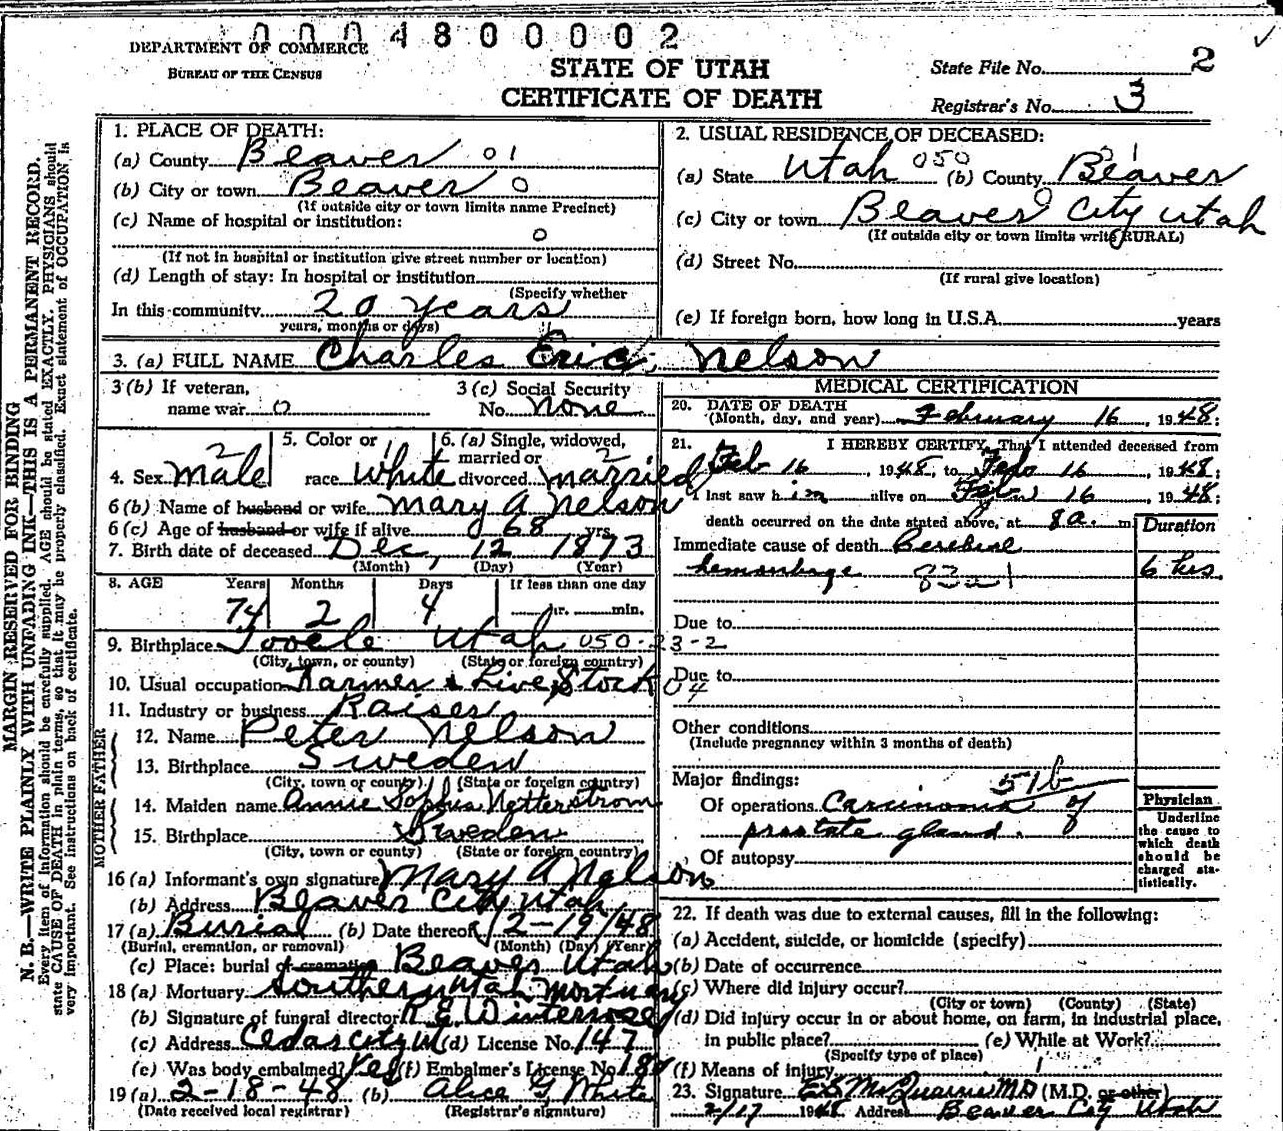 0004800002
DEPARTMENT OF COMMERCE
BUREAU OF THE CENSUS
STATE OF UTAH
CERTIFICATE OF DEATH
State File No. 2
Registrar's No. 3
MARGIN RESERVED FOR BINDING
N. B.—WRITE PLAINLY WITH UNFADING INK—THIS IS A PERMANENT RECORD.
Every item of information should be carefully supplied. AGE should be stated EXACTLY. PHYSICIANS should
state CAUSE OF DEATH in plain terms, so that it may be properly classified. Exact statement of OCCUPATION is
very important. See instructions on back of certificate.
1. PLACE OF DEATH:
(a) County Beaver 01
(b) City or town Beaver 0
(If outside city or town limits name Precinct)
(c) Name of hospital or institution:
0
(If not in hospital or institution give street number or location)
(d) Length of stay: In hospital or institution
(Specify whether
In this community 20 years
years, months or days)
2. USUAL RESIDENCE OF DECEASED:
(a) State Utah 050 (b) County Beaver 1
(c) City or town Beaver City Utah 0
(If outside city or town limits write RURAL)
(d) Street No.
(If rural give location)
(e) If foreign born, how long in U.S.A. years
3. (a) FULL NAME Charles Eric Nelson
3 (b) If veteran,
name war 0
3 (c) Social Security
No. none
4. Sex Male 2
5. Color or
race White 1
6. (a) Single, widowed,
married or
divorced married 2
6 (b) Name of husband or wife Mary A Nelson
6 (c) Age of husband or wife if alive 68 yrs.
7. Birth date of deceased Dec, 12 1873
(Month) (Day) (Year)
8. AGE Years Months Days If less than one day
74 2 4 hr. min.
9. Birthplace Tooele Utah 050-23-2
(City, town, or county) (State or foreign country)
10. Usual occupation Farmer & Live Stock 04
11. Industry or business Raiser
FATHER
12. Name Peter Nelson
13. Birthplace Sweden
(City, town or county) (State or foreign country)
MOTHER
14. Maiden name Annie Sophia Netterstrom
15. Birthplace Sweden
(City, town or county) (State or foreign country)
16 (a) Informant's own signature Mary A Nelson
(b) Address Beaver City Utah
17 (a) Burial (b) Date thereof 2-19/48
(Burial, cremation, or removal) (Month) (Day) (Year)
(c) Place: burial or cremation Beaver Utah
18 (a) Mortuary Southern Utah Mortuary
(b) Signature of funeral director R E Winterrose
(c) Address Cedar City U (d) License No. 147
(e) Was body embalmed? Yes (f) Embalmer's License No. 180
19 (a) 2-18-48 (b) Alice G White
(Date received local registrar) (Registrar's signature)
MEDICAL CERTIFICATION
20. DATE OF DEATH
(Month, day, and year) February 16, 1948;
21. I HEREBY CERTIFY, That I attended deceased from
Feb 16, 1948, to Feb 16, 1948;
I last saw him alive on Feb 16, 1948;
death occurred on the date stated above, at 8 a. m.
Duration
Immediate cause of death Cerebral
hemorrhage 83a1 6 hrs.
Due to
Due to
Other conditions
(Include pregnancy within 3 months of death)
Major findings: 51b
Of operations Carcinoma of
prostate gland.
Of autopsy
Physician
Underline
the cause to
which death
should be
charged sta-
tistically.
22. If death was due to external causes, fill in the following:
(a) Accident, suicide, or homicide (specify)
(b) Date of occurrence
(c) Where did injury occur?
(City or town) (County) (State)
(d) Did injury occur in or about home, on farm, in industrial place,
in public place? (e) While at Work?
(Specify type of place)
(f) Means of injury
23. Signature M.D. (M.D. or other)
2/17 1948 Address Beaver City Utah